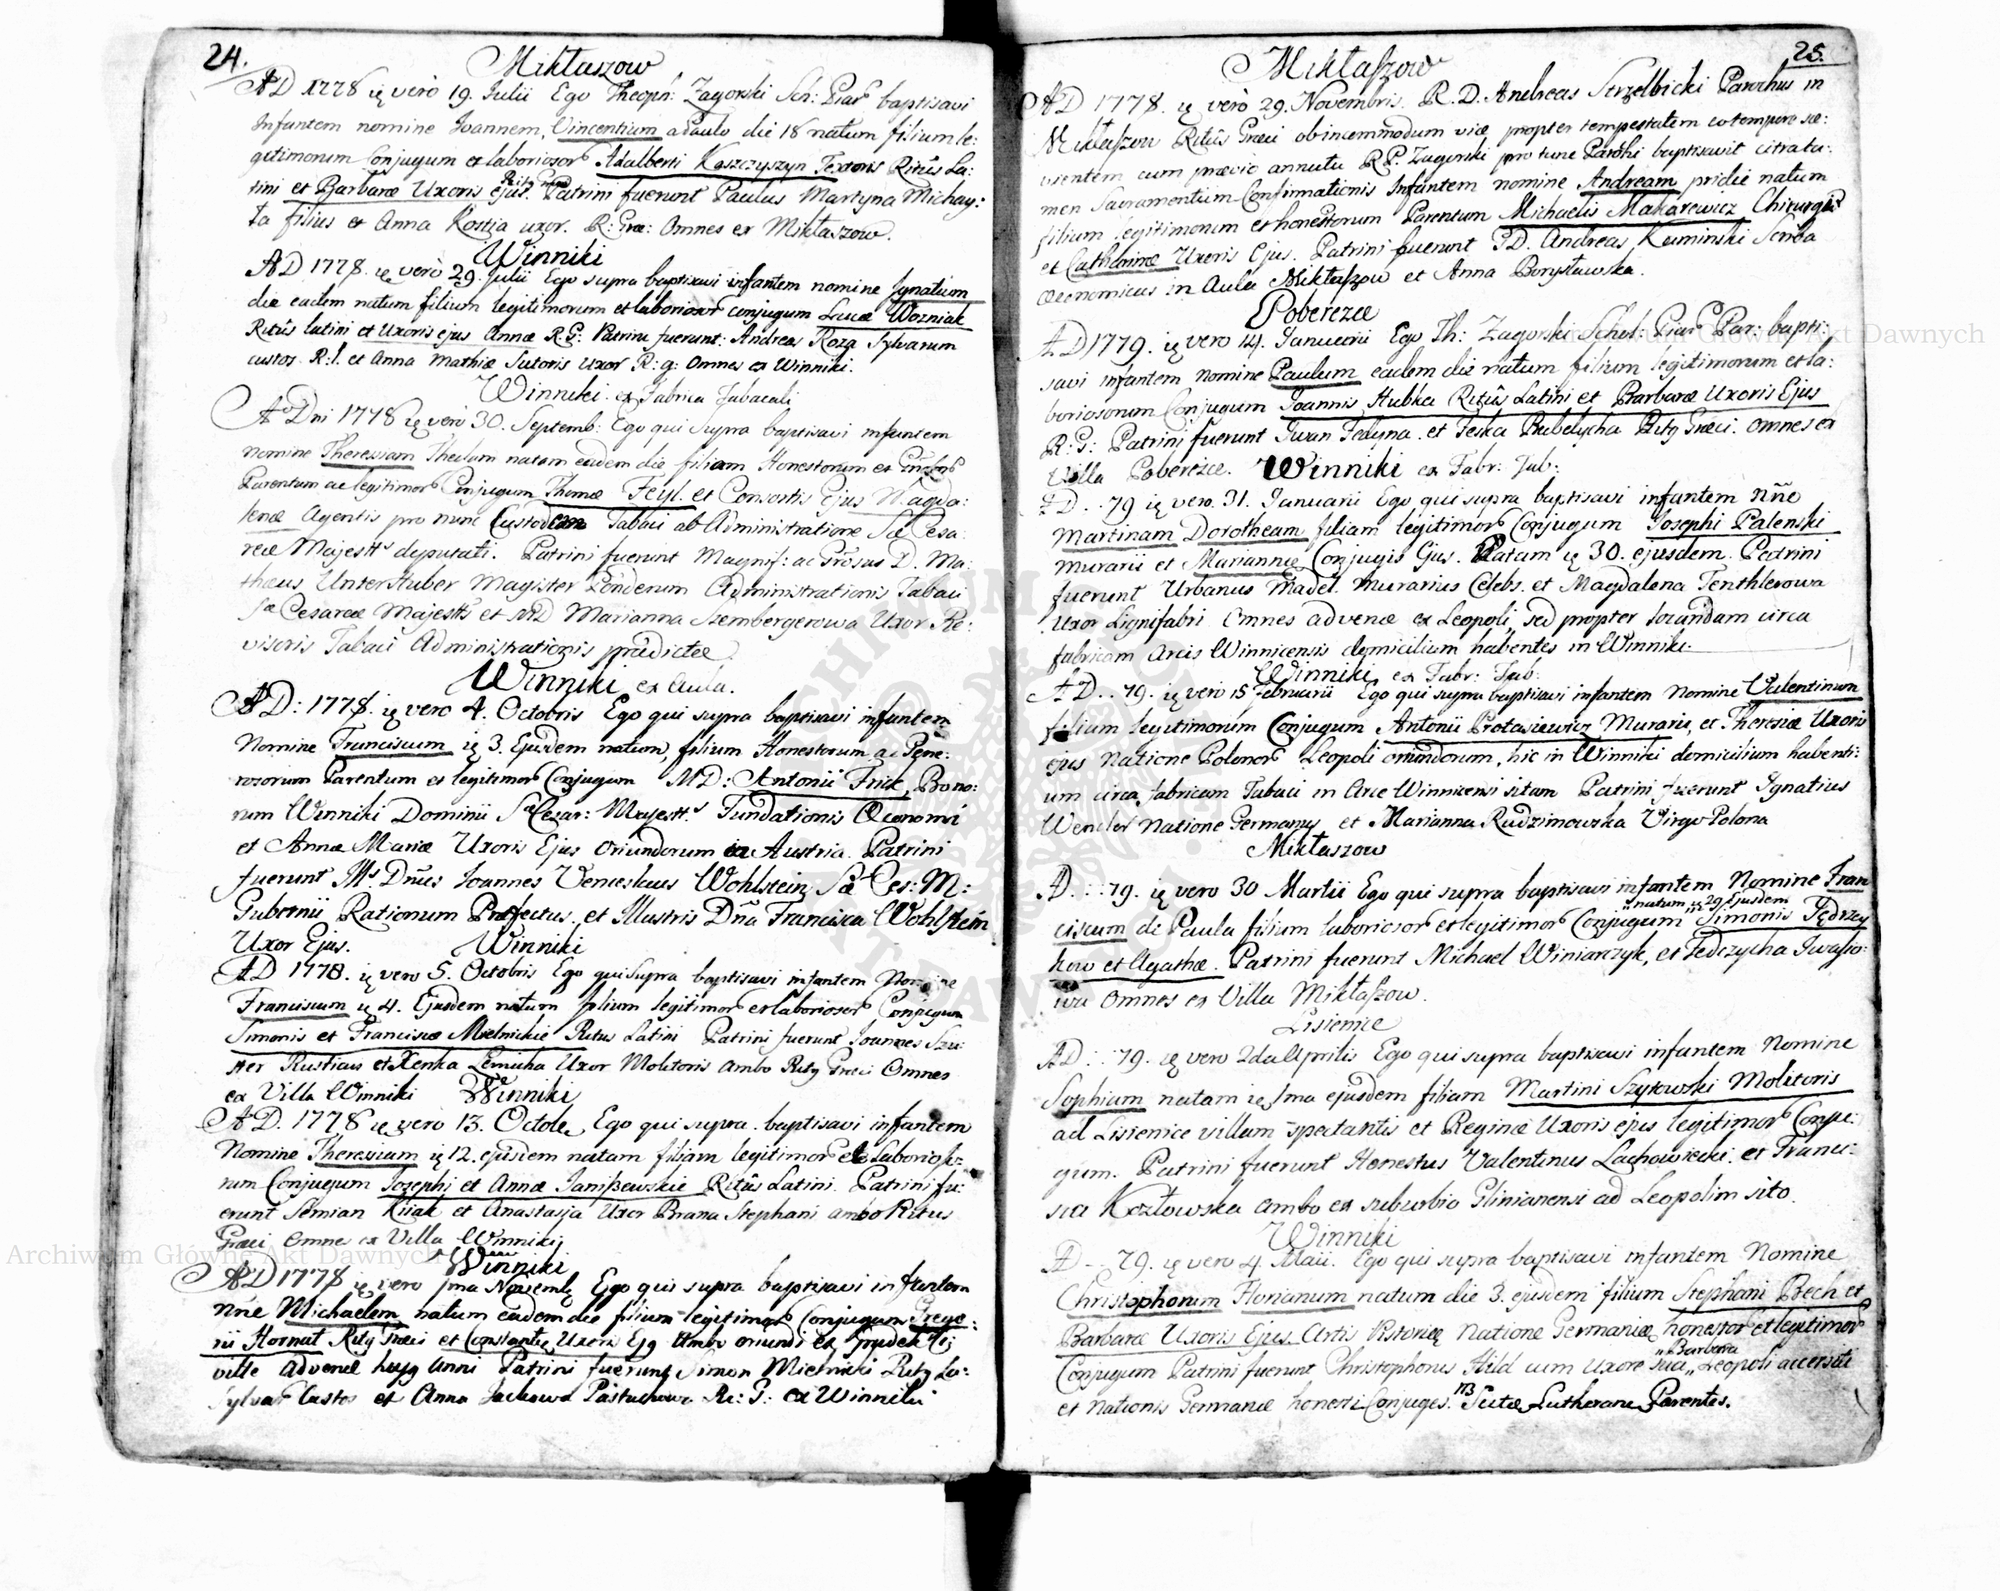 24.
Mikłaszow
AD 1778 ię verò 19. Julii Ego Theoph: Zagorski Sch: Piar baptisavi
Infantem nomine Joannem, Vincentium a Paulo die 18 natum filium le:
gitimorum Conjugum et laboriosor Adalberti Kaszczyszyn Textoris Ritûs La:
tini et Barbaræ Uxoris ejus. Patrini fuerunt Paulus Martyna Michay:
ta filius et Anna Kostia uxor. R: Græ: Omnes ex Mikłaszow.
Winniki
AD 1778. ię verò 29. Julii Ego supra baptisavi infantem nomine Ignatium
die eadem natum filium legitimorum et laboriosor conjugum Lucæ Wozniak
Ritûs latini et Uxoris ejus Annæ R.G: Patrini fuerunt: Andreas Koza Sylvarum
custos R: l. et Anna Mathiæ Sutoris Uxor R: g: Omnes ex Winniki.
Winniki ex Fabrica Tabacali
A Dni 1778 ię verò 30. Septemb: Ego qui supra baptisavi infantem
nomine Theressiam Theclam natam eadem die filiam Honestorum et
Parentum ac legitimor Conjugum Thomæ Feyl. et Consortis Ejus Magda:
lenæ Agentis pro nunc Tabaci ab Administratione Sæ Cesa:
reæ Majestt deputati. Patrini fuerunt Magnif: ac Gnosus D. Ma:
thæus Unterstuber Magister Ponderum Administrationis Tabaci
Sæ Cesareæ Majestts et MD Marianna Szembergerowa Uxor Re:
visoris Tabaci Administrationis prædictæ.
Winniki ex Aula.
AD: 1778. ię vero 4. Octobris Ego qui supra baptisavi infantem
Nomine Franciscum ię 3. Ejusdem natum, filium Honestorum ac Gene:
rosorum Parentum et legitimor Conjugum MD: Antonii Frick, Bono:
rum Winniki Dominii Sæ Cesar: Majestt Fundationis Œconomi
et Annæ Mariæ Uxoris Ejus oriundorum ex Austria. Patrini
fuerunt Ills Dnus Joannes Venceslaus Wohlstein Sæ Ces: M:
Gubernii Rationum Præfectus, et Illustris Dna Francisca Wohlstein
Uxor Ejus.
Winniki
AD 1778. ię vero 5. Octobris Ego qui supra baptisavi infantem Nomine
Franciscum ię 4. Ejusdem natum filium legitimor et laboriosor Conjugum
Simonis et Franciscæ Mielnickie Ritus Latini Patrini fuerunt Joannes Szu:
ster Rusticus et Xenka Lemicha Uxor Molitoris ambo Ritq Græci Omnes
ex Villa Winniki
Winniki
AD. 1778 ię vero 13. Octobr, Ego qui supra baptisavi infantem
Nomine Theressiam ię 12. ejusdem natam filiam legitimor et laborioso:
rum Conjugum Josephi et Annæ Janiszewskie Ritûs Latini. Patrini fu:
erunt Semian Kisak et Anastasja Uxor Brana Stephani ambo Ritus
Græci Omnes ex Villa Winniki
Winniki
AD 1778 ię vero 1ma Novembr Ego qui supra baptisavi infantem
nne Michaelem natum eadem die filium legitimor Conjugum Grego:
rii Hornat Ritq Græci et Constantiæ Uxoris Ejq Ambo oriundi ex Grudek Ci:
ville advenæ hujq anni Patrini fuerunt Simon Mielnicki Ritq La:
Sylvar Custos et Anna Jackowa Pastuchowa R: G: ex Winniki
25.
Mikłaszow
AD 1778. ię verò 29. Novembris. R.D. Andreas Strzelbicki Parochus in
Mikłaszow Ritûs Græci ob incommodum viæ propter tempestatem eo tempore sæ:
vientem cum prævio annutu R.P. Zagorski pro tunc Parochi baptisavit citra ta:
men Sacramentum Confirmationis Infantem nomine Andream pridie natum
filium legitimorum et honestorum Parentum Michaelis Makarewicz Chirurgi
et Catharinæ Uxoris Ejus. Patrini fuerunt GD. Andreas Kuminski Scriba
Œconomicus in Aula Mikłaszow et Anna Borysławska.
Poberezce
AD 1779. ię vero 14. Januarii Ego Th: Zagorski Schol: Piar Par: bapti:
savi infantem nomine Paulum eadem die natum filium legitimorum et la:
boriosorum Conjugum Joannis Hubka Ritûs Latini et Barbaræ Uxoris Ejus
R: G: Patrini fuerunt Iwan Fedyna et Feska Bubelycha Ritq Græci. Omnes ex
Villa Poberezce.
Winniki ex Fabr: Tab:
AD . . 79 ię vero 31. Januarii Ego qui supra baptisavi infantem nñe
Martinam Dorotheam filiam legitimor Conjugum Josephi Palenski
Murarii et Mariannæ Conjugis Ejus. Natam ię 30. ejusdem. Patrini
fuerunt Urbanus Madel Murarius Celebs. et Magdalena Tenthlerowa
Uxor Lignifabri Omnes advenæ ex Leopoli, sed propter locandam circa
fabricam Arcis Winnicensis domicilium habentes in Winniki.
Winniki ex Fabr: Tab:
AD . . 79. ię verò 15 Februarii Ego qui supra baptisavi infantem Nomine Valentinum
filium legitimorum Conjugum Antonii Protasiewicz Murarii, et Theresiæ Uxoris
ejus Natione Polonor Leopoli oriundorum, hic in Winniki domicilium habenti:
um circa fabricam Tabaci in Arce Winnicensi sitam Patrini fuerunt Ignatius
Wencler Natione Germanq et Marianna Rudzimowska Virgo Polona
Mikłaszow
AD . . 79. ię vero 30 Martii Ego qui supra baptisavi infantem Nomine Fran
natum ię 29 Ejusdem
ciscum de Paula filium laboriosor et legitimor Conjugum Simonis Jędrzey
kow et Agathæ. Patrini fuerunt Michael Winiarczyk, et Fedczycha Iwasko:
wa Omnes ex Villa Mikłaszow.
Lisienice
AD . . 79. ię vero 2da Aprilis Ego qui supra baptisavi infantem Nomine
Sophiam natam ię 1ma ejusdem filiam Martini Szytowski Molitoris
ad Lisienice villam spectantis et Reginæ Uxoris ejus legitimor Conju:
gum. Patrini fuerunt Honestus Valentinus Lachowiecki et Franci:
sca Kozłowska ambo ex suburbio Gliniarensi ad Leopolim sito.
Winniki
AD . . 79. ię vero 4. Maii. Ego qui supra baptisavi infantem Nomine
Christophorum Florianum natum die 3. ejusdem filium Stephani Bech et
Barbaræ Uxoris Ejus Artis Pistoriæ Natione Germaniæ honestor et legitimor
Barbara
Conjugum Patrini fuerunt Christophorus Hild cum Uxore sua, Leopoli accersiti
et Nationis Germanæ honesti Conjuges. NB Sectæ Lutheranæ Parentes.
Archiwum Główne Akt Dawnych
Archiwum Główne Akt Dawnych